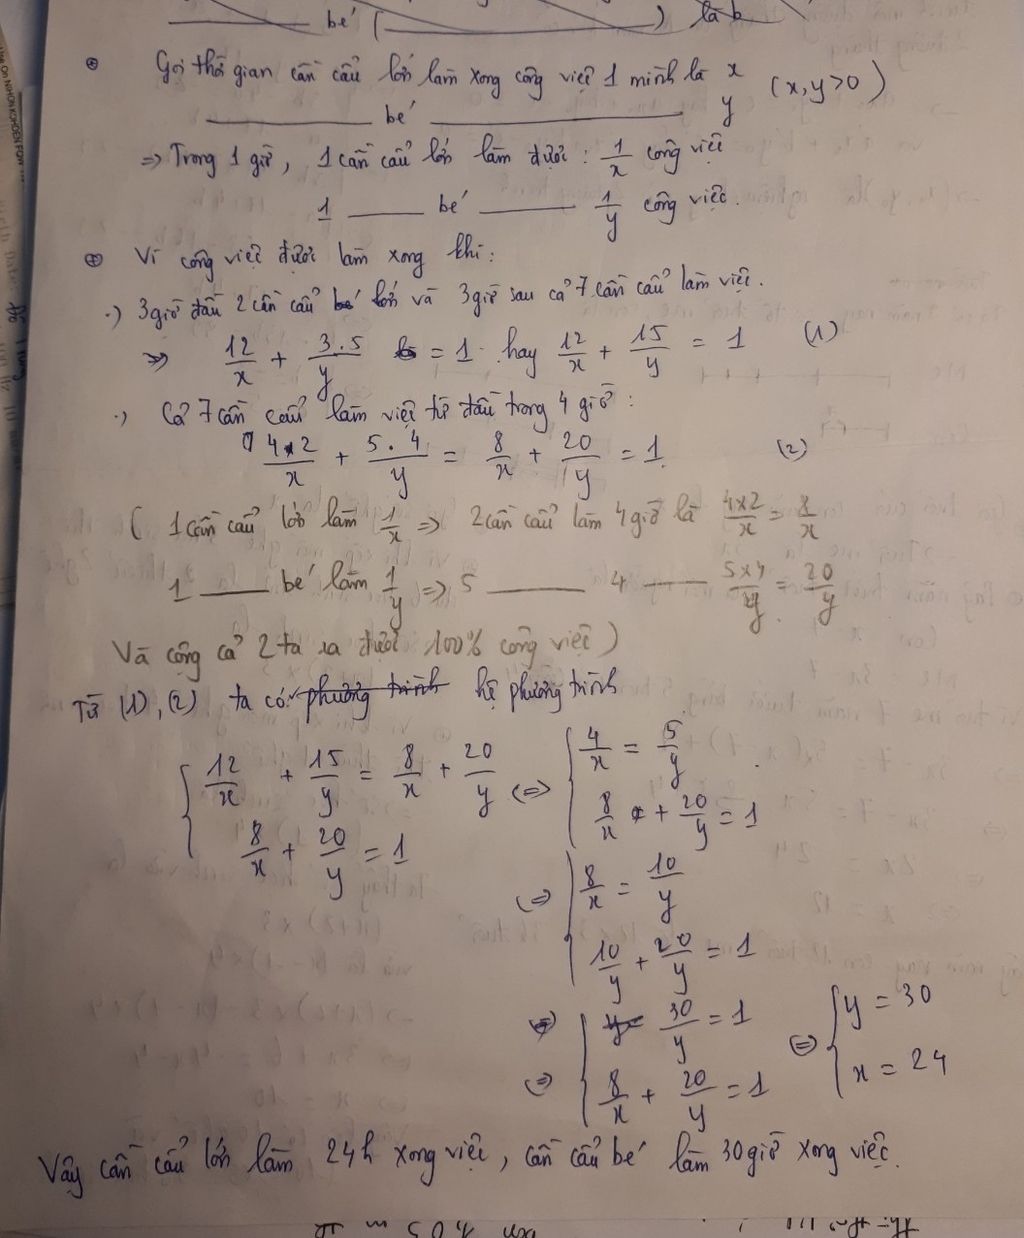 bé (                    ) là
⊕ Gọi thời gian cần cẩu lớn làm xong công việc 1 mình là x (x,y>0)
bé y
=> Trong 1 giờ, 1 cần cẩu lớn làm được : 1/x công việc
1 bé 1/y công việc.
⊕ Vì công việc được làm xong khi:
.) 3 giờ đầu 2 cần cẩu bé lớn và 3 giờ sau cả 7 cần cẩu làm việc.
=> 12/x + 3.5/y = 1 hay 12/x + 15/y = 1 (1)
.) Cả 7 cần cẩu làm việc từ đầu trong 4 giờ :
4x2/x + 5.4/y = 8/x + 20/y = 1 (2)
( 1 cần cẩu lớn làm 1/x => 2 cần cẩu làm 4 giờ là 4x2/x = 8/x
1 bé làm 1/y => 5 4 5x4/y = 20/y
Và cộng cả 2 ta ra được 100% công việc )
Từ (1), (2) ta có phương trình hệ phương trình
{ 12/x + 15/y = 8/x + 20/y <=> { 4/x = 5/y
8/x + 20/y = 1 8/x + 20/y = 1
<=> { 8/x = 10/y
10/y + 20/y = 1
<=> { 30/y = 1 <=> { y = 30
8/x + 20/y = 1 x = 24
Vậy cần cẩu lớn làm 24h xong việc, cần cẩu bé làm 30 giờ xong việc.